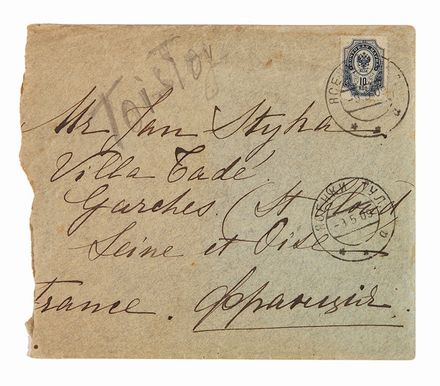 Tolstoy
Mr Jan Styka
Villa Tadé
Garches. (St Cloud
Seine et Oise
France. Франція.
10
ЯСЕНКИ ТУЛ.